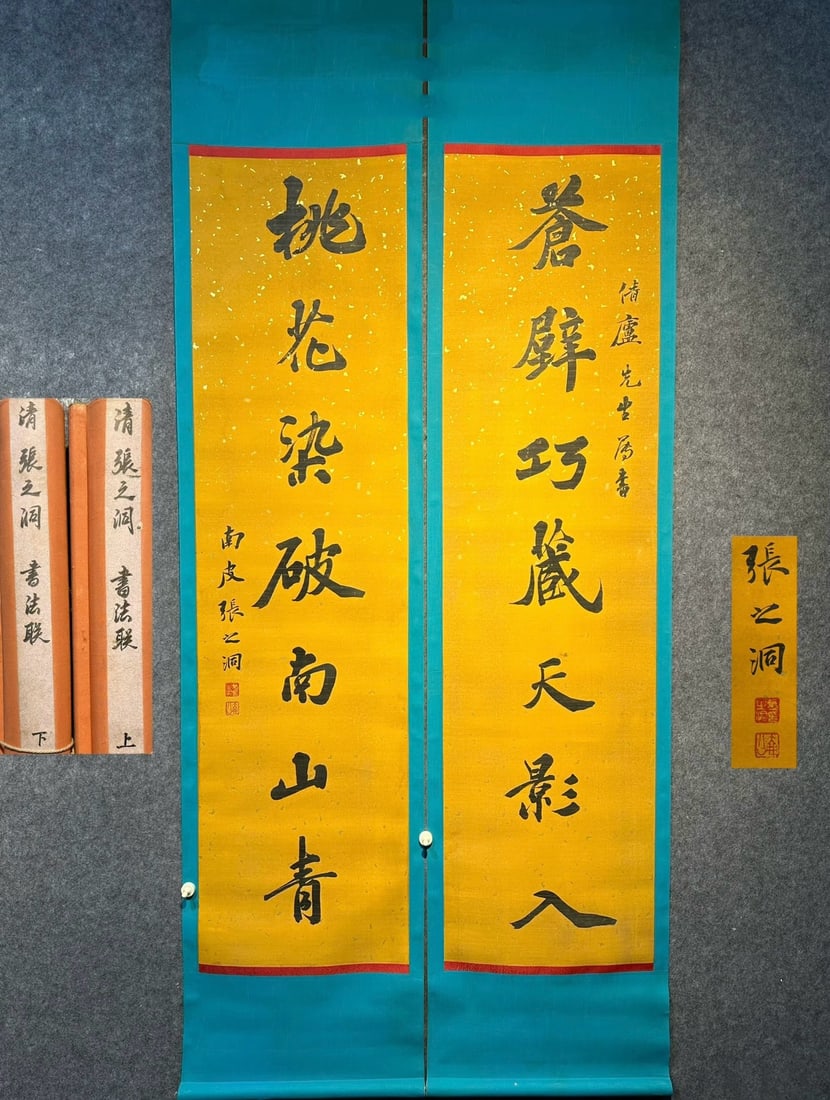 蒼壁巧藏天影入
倩廬先生属書
桃花染破南山青
南皮張之洞
清 張之洞 書法联 上
清 張之洞 書法联 下
張之洞